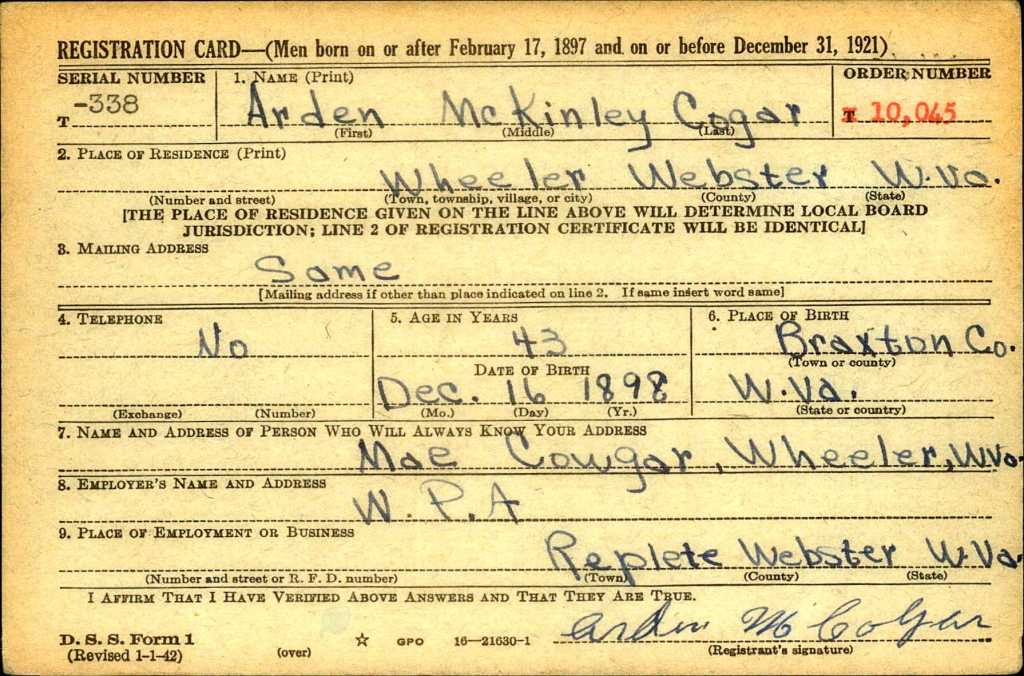 REGISTRATION CARD—(Men born on or after February 17, 1897 and on or before December 31, 1921)
SERIAL NUMBER 1. NAME (Print) ORDER NUMBER
T -338 Arden McKinley Cogar T 10,045
(First) (Middle) (Last)
2. PLACE OF RESIDENCE (Print)
Wheeler Webster W.Va.
(Number and street) (Town, township, village, or city) (County) (State)
[THE PLACE OF RESIDENCE GIVEN ON THE LINE ABOVE WILL DETERMINE LOCAL BOARD
JURISDICTION; LINE 2 OF REGISTRATION CERTIFICATE WILL BE IDENTICAL]
3. MAILING ADDRESS
Same
[Mailing address if other than place indicated on line 2. If same insert word same]
4. TELEPHONE 5. AGE IN YEARS 6. PLACE OF BIRTH
No 43 Braxton Co.
DATE OF BIRTH (Town or county)
Dec. 16 1898 W.Va.
(Exchange) (Number) (Mo.) (Day) (Yr.) (State or country)
7. NAME AND ADDRESS OF PERSON WHO WILL ALWAYS KNOW YOUR ADDRESS
Mae Cowgar, Wheeler, W.Va.
8. EMPLOYER'S NAME AND ADDRESS
W. P. A
9. PLACE OF EMPLOYMENT OR BUSINESS
Replete Webster W.Va.
(Number and street or R. F. D. number) (Town) (County) (State)
I AFFIRM THAT I HAVE VERIFIED ABOVE ANSWERS AND THAT THEY ARE TRUE.
D. S. S. Form 1 ☆ GPO 16—21630-1 Arden M Cogar
(Revised 1-1-42) (over) (Registrant's signature)